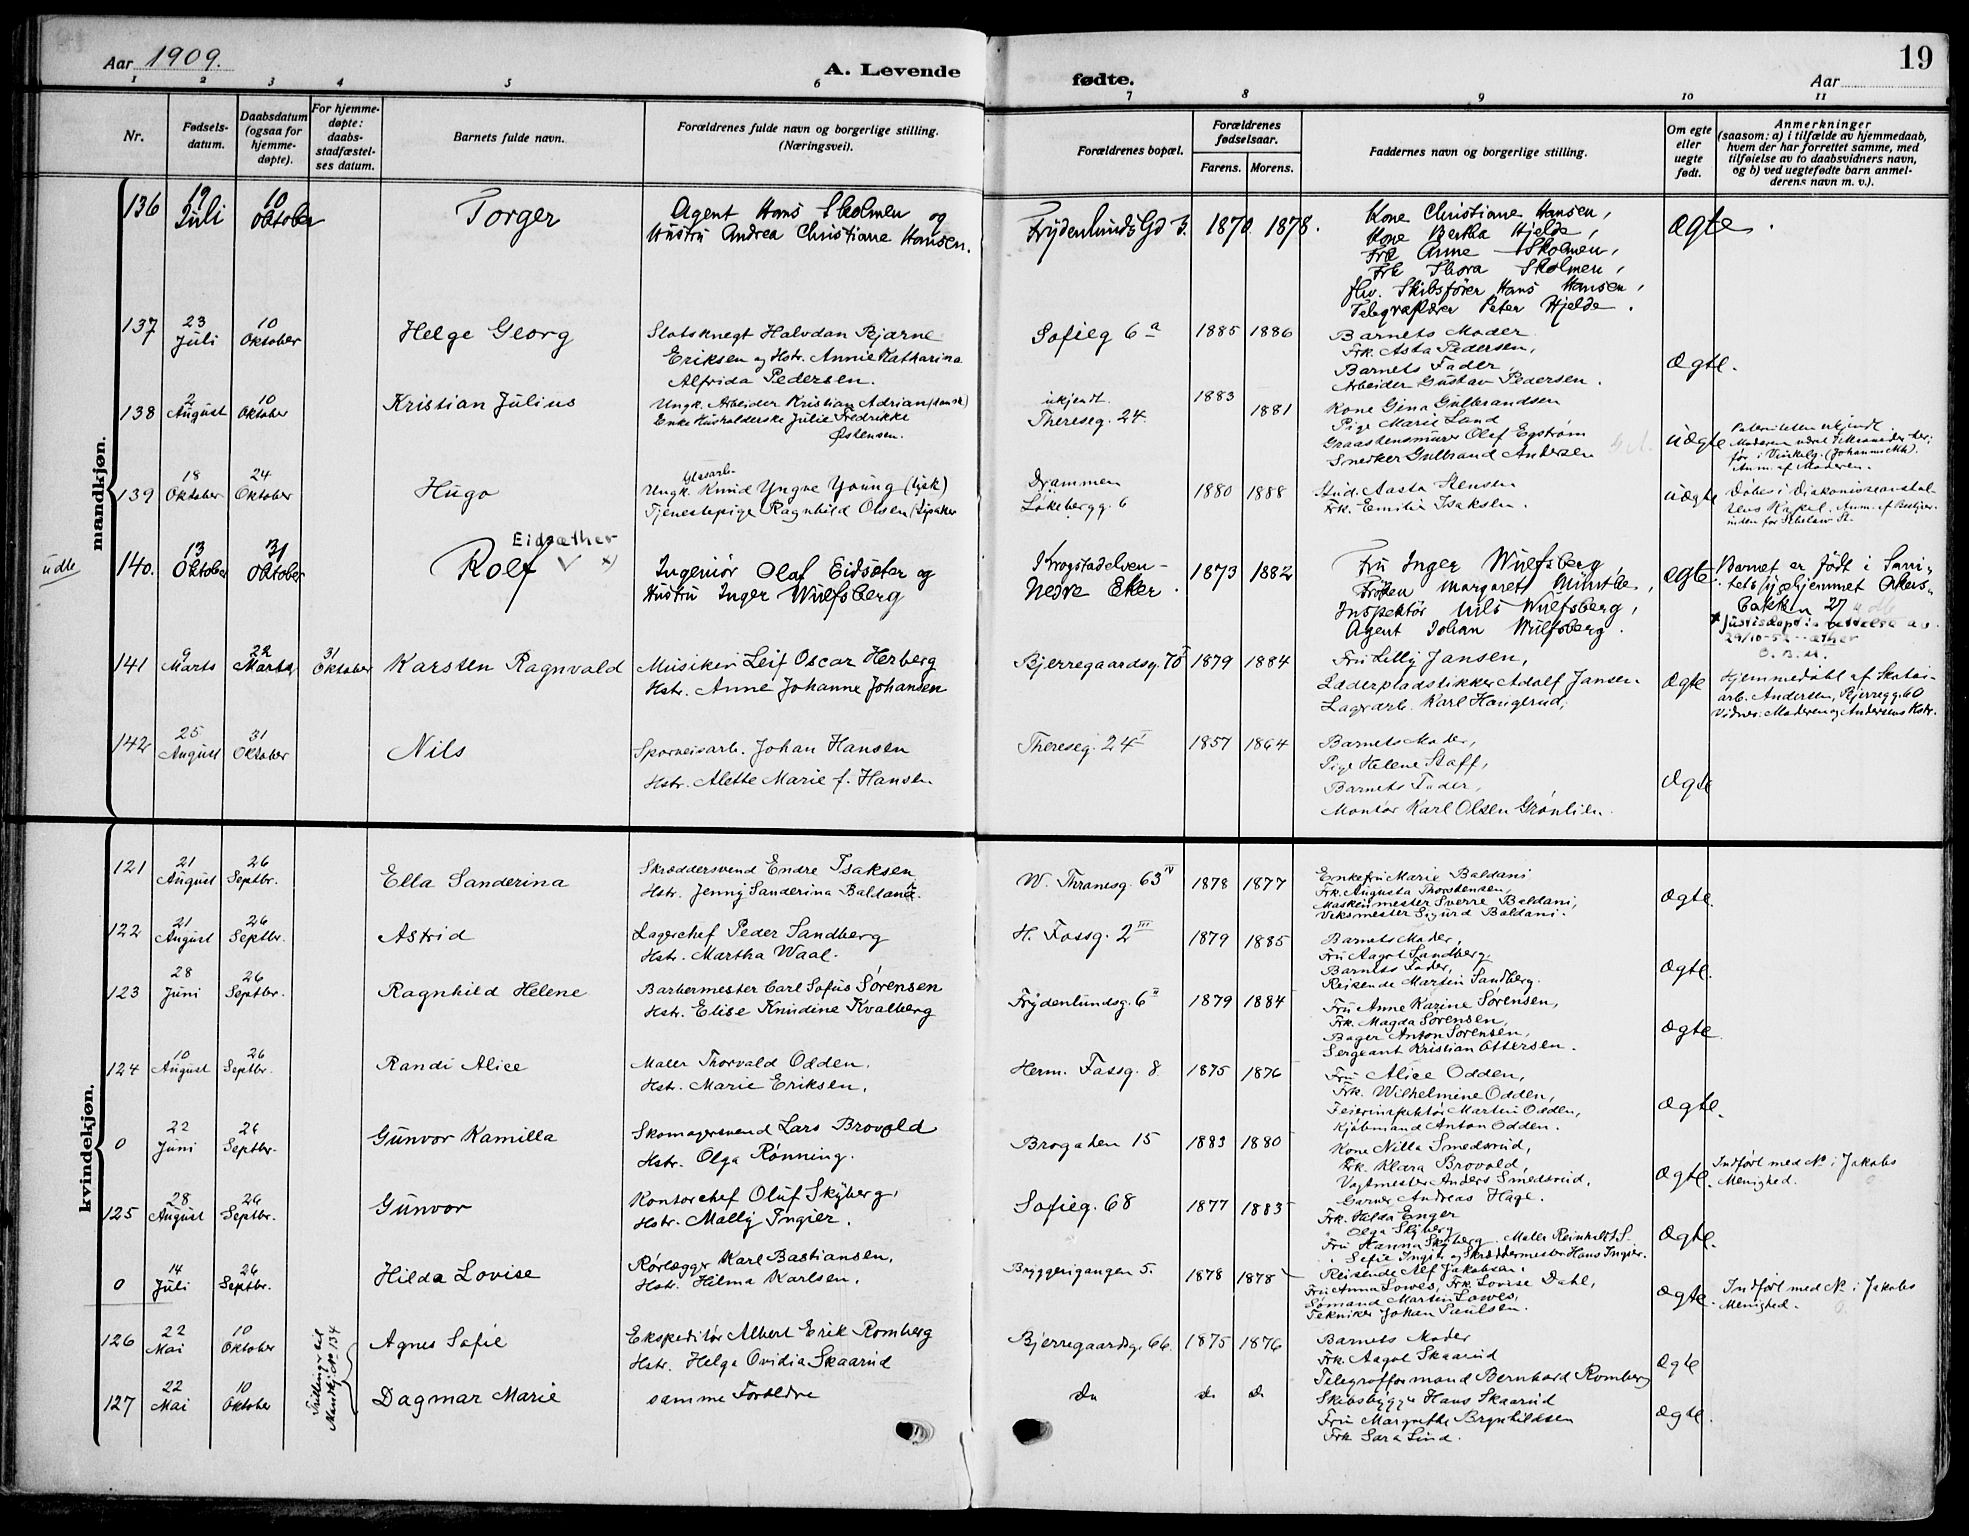 Aar 1909.
A. Levende fødte.
Aar
19
1 2 3 4 5 6 7 8 9 10 11
Nr.
Fødsels-
datum.
Daabsdatum
(ogsaa for
hjemme-
døpte).
For hjemme-
døpte:
daabs-
stadfæstel-
ses datum.
Barnets fulde navn.
Forældrenes fulde navn og borgerlige stilling.
(Næringsvei).
Forældrenes bopæl.
Forældrenes
fødselsaar.
Farens. Morens.
Faddernes navn og borgerlige stilling.
Om egte
eller
uegte
født.
Anmerkninger
(saasom: a) i tilfælde av hjemmedaab,
hvem der har forrettet samme, med
tilføielse av to daabsvidners navn,
og b) ved uegtefødte barn anmel-
derens navn m. v.).
mandkjøn.
136
19 Juli
10 Oktober
Torger
Agent Hans Skolmen og
Hustru Andrea Christiane Hansen.
Frydenlunds Gd 3.
1870 1878.
Kone Christiane Hansen,
Kone Bertha Hjelde,
Frk Anne Skolmen,
Frk Thora Skolmen,
fhv. Skibsfører Hans Hansen,
Telegrafkører Peter Hjelde.
ægte.
137
23 Juli
10 Oktober
Helge Georg
Slotsknegt Halvdan Bjarne
Eriksen og Hstr. Annie Katharina
Alfrida Pedersen.
Sofieg 6a
1885 1886
Barnets Moder
Frk. Asta Pedersen,
Barnets Fader,
Arbeider Gustav Pedersen.
Ægte.
138
2 August
10 Oktober
Kristian Julius
Ungk. Arbeider Kristian Adrian (dansk)
Enke Husholderske Julie Fredrikke
Østensen.
ukjendt.
Thereseg. 24.
1883
1881
Kone Gina Gulbrandsen
Pige Marie Lund
Graastensmurer Olaf Egström
Snedker Gulbrand Andersen
uægte
Paterniteten ukjendt.
Moderen
Anm. af Moderen.
139
18 Oktober
24 Oktober
Hugo
Ungk. Knud Yngve Young (tysk)
Tjenestepige Ragnhild Olsen
Drammen
Løkebergg. 6
1880 1888
Stud. Aasta Stensen
Frk. Emilie Isaksen.
uægte
Døbes i Diakonisseanstal-
tens Kapel. Anm. af Bestyrer-
inden for
udle
140.
13 Oktober
31 Oktober
Eidsæther
Rolf ✓ x)
Ingeniør Olaf Eidsøter og
Hustru Inger Wulfsberg
Krogstadelven-
Nedre Eker.
1873 1882
Fru Inger Wulfsberg,
Frøken Margaret Münthe,
Inspektør Nils Wulfsberg,
Agent Johan Wulfsberg.
ægte.
Barnet er født i Sani-
tetssygehjemmet Akers-
bakken 27
x Justisdept.s av
29/10-52 -æther
141
9 Marts
22 Marts
31 Oktober
Karsten Ragnvald
Musiker Leif Oscar Herberg
Hstr. Anne Johanne Johansen
Bjerregaardsg. 70I
1879 1884
Fru Lilly Jansen,
Læderpladstikker Adolf Jansen
Lagerarb. Karl Haugerud,
Ægte
Hjemmedøbt af Skotøi-
arb. Andersen, Bjerregg. 60
Vidner: Moderen og Andersens Hstr.
142
25 August
31 Oktober
Nils
Sporveisarb. Johan Hansen
Hstr. Alette Marie f. Hansen
Thereseg. 24I
1857 1864
Barnets Moder,
Pige Helene Staff,
Barnets Fader,
Montør Karl Olsen Grønlien.
Ægte
kvindekjøn.
121
21 August
26 Septbr.
Ella Sanderina
Skræddersvend Endre Isaksen
Hstr. Jenny Sanderina Baldani.
W. Thranesg. 63IV
1878 1877
Enkefru Marie Baldani
Frk. Augusta Thorstensen,
Maskinmester Sverre Baldani,
Verksmester Sigurd Baldani.
Ægte.
122
21 August
26 Septbr.
Astrid
Lagerchef Peder Sandberg
Hstr. Martha Waal.
H. Fossg. 2III
1879 1885
Barnets Moder,
Fru Aagot Sandberg.
Barnets Fader,
Reisende Martin Sandberg.
Ægte.
123
28 Juni
26 Septbr.
Ragnhild Helene
Barbermester Carl Sofus Sørensen
Hstr. Elise Knudine Kvalberg
Frydenlundsg. 6II
1879 1884
Fru Anne Karine Sørensen,
Frk. Magda Sørensen,
Bager Anton Sørensen,
Sergeant Kristian Ottersen.
Ægte.
124
10 August
26 Septbr.
Randi Alice
Maler Thorvald Odden.
Hstr. Marie Eriksen.
Herm. Fossg. 8
1875 1876
Fru Alice Odden,
Frk. Wilhelmine Odden,
Feierinspektør Martin Odden,
Kjøbmand Anton Odden.
Ægte.
0
22 Juni
26 Septbr.
Gunvor Kamilla
Skomagersvend Lars Brovold
Hstr. Olga Rønning.
Brogaden 15
1883 1880
Kone Nilla Smedsrud,
Frk. Klara Brovold,
Vagtmester Anders Smedsrud,
Garver Andreas Hage.
Ægte.
Indført med No i Jakobs
Menighed. 0
125
28 August
26 Septbr.
Gunvor
Kontorchef Oluf Skyberg,
Hstr. Mally Ingier.
Sofieg. 68
1877 1883
Frk. Hilda Enger
" Olga Skyberg
Fru Hanna Skyberg. Maler Reinholdt S.
" Sofie Ingier og Skræddermester Hans Ingier.
Ægte.
0
14 Juli
26 Septbr.
Hilda Lovise
Rørlægger Karl Bastiansen,
Hstr. Hilma Karlsen.
Bryggerigangen 5.
1878 1878
Reisende Alf Jakobsen.
Fru Anna Lowes, Frk. Lovise Dahl,
Sømand Martin Lowes,
Tekniker Johan Paulsen.
Ægte.
Indført med No i Jakobs
Menighed. 0.
126
22 Mai
10 Oktober
Trillinger til
Mandkj. No 134
Agnes Sofie
Ekspeditør Albert Erik Romberg
Hstr. Helga Ovidia Skaarud
Bjerregaardsg. 66.
1875 1876
Barnets Moder
Frk. Aagot Skaarud
Telegrafformand Bernhard Romberg
Ægte
127
22 Mai
10 Oktober
Dagmar Marie
samme Forældre
Do
do do
Skibsbygger Hans Skaarud
Fru Margrethe Brynhildsen
Frk Sara Lind.
Ægte.